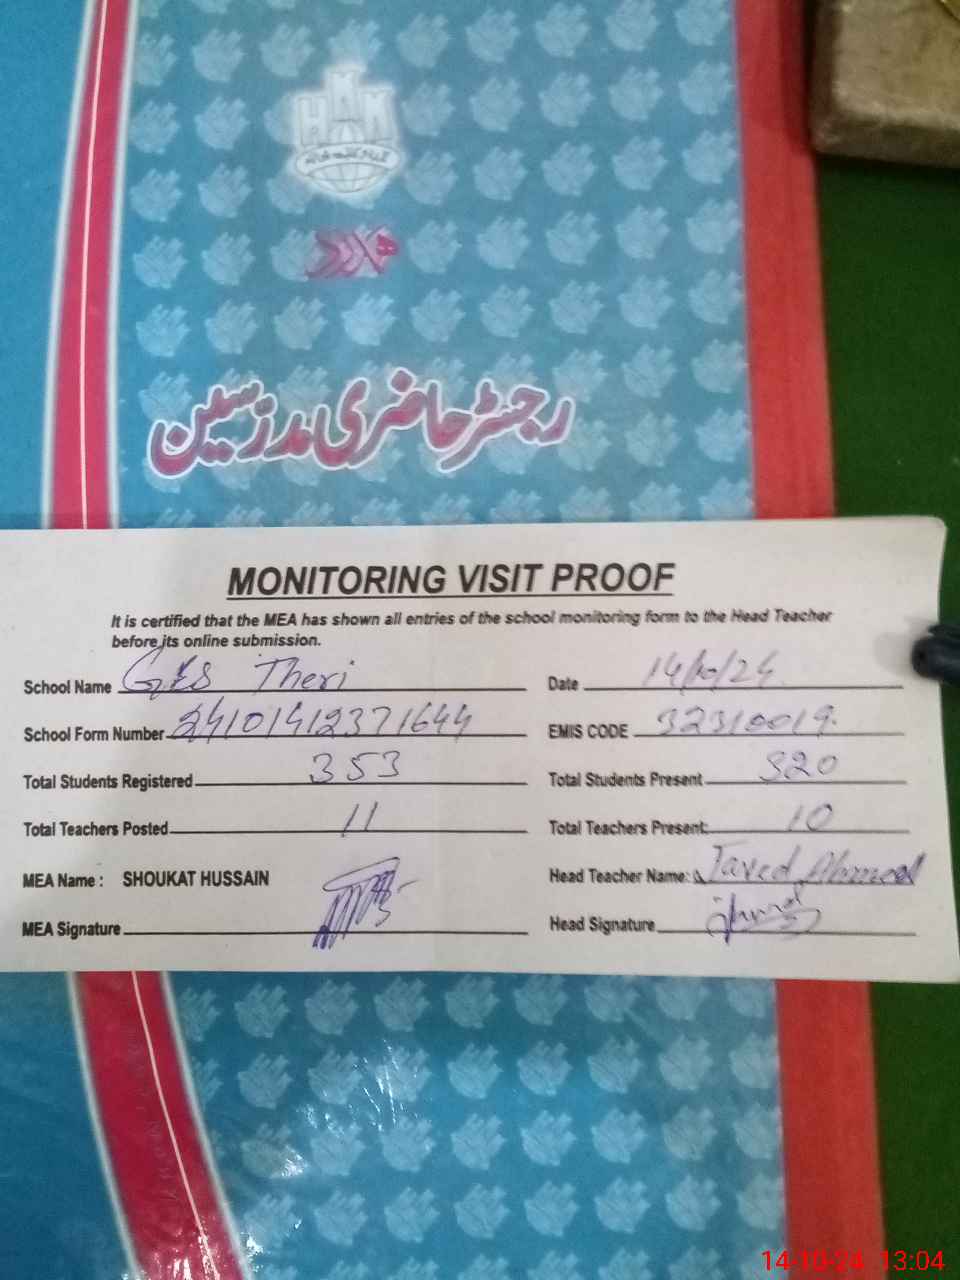 HAK
رجسٹر حاضری مدرسین
MONITORING VISIT PROOF
It is certified that the MEA has shown all entries of the school monitoring form to the Head Teacher
before its online submission.
School Name GES Theri Date 14/10/24
School Form Number 24101412371644 EMIS CODE 32310019
Total Students Registered 353 Total Students Present 320
Total Teachers Posted 11 Total Teachers Present: 10
MEA Name : SHOUKAT HUSSAIN Head Teacher Name: Javed Ahmed
MEA Signature Head Signature
14-10-24 13:04